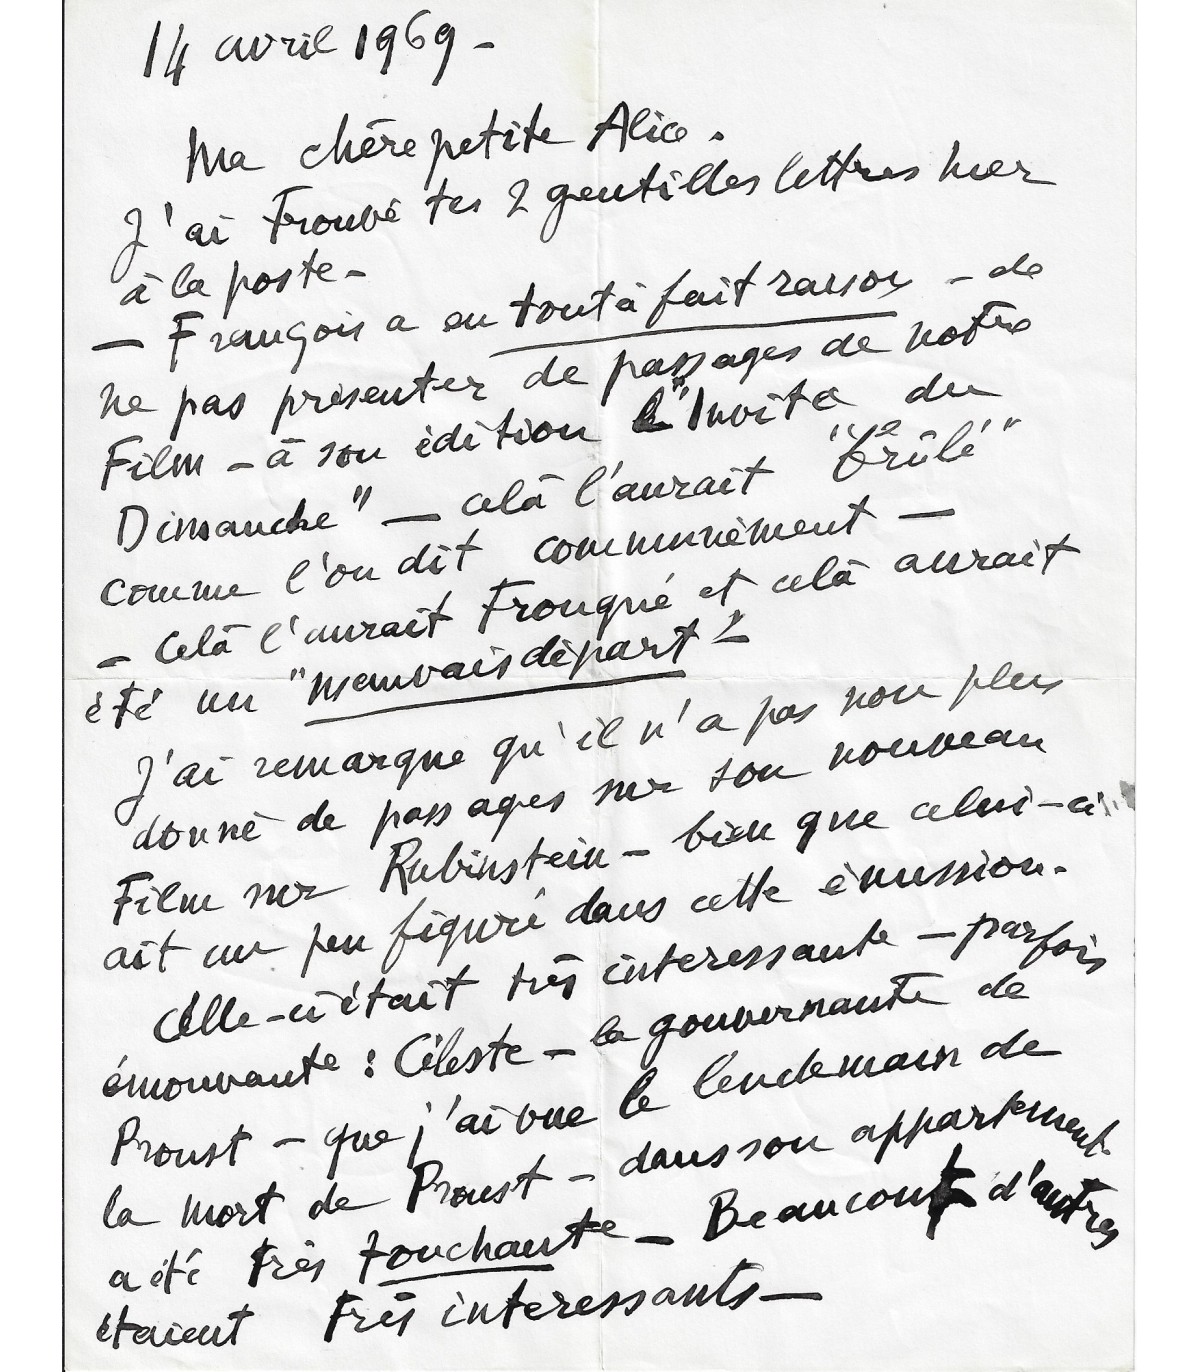 14 avril 1969 -
Ma chère petite Alice.
J'ai trouvé tes 2 gentilles lettres hier
à la poste -
— François a eu tout à fait raison - de
ne pas présenter de passages de notre
Film - à son édition "l'Invité du
Dimanche" — celà l'aurait "brûlé"
comme l'on dit communèment —
- celà l'aurait tronqué et celà aurait
été un "mauvais départ" -
J'ai remarqué qu'il n'a pas non plus
donné de passages sur son nouveau
Film sur Rubinstein - bien que celui-ci
ait un peu figuré dans cette émission.
Celle-ci était très interessante - parfois
émouvante : Céleste - la gouvernante de
Proust - que j'ai vue le lendemain de
la mort de Proust - dans son appartement
a été très touchante - Beaucoup d'autres
étaient très interessants —